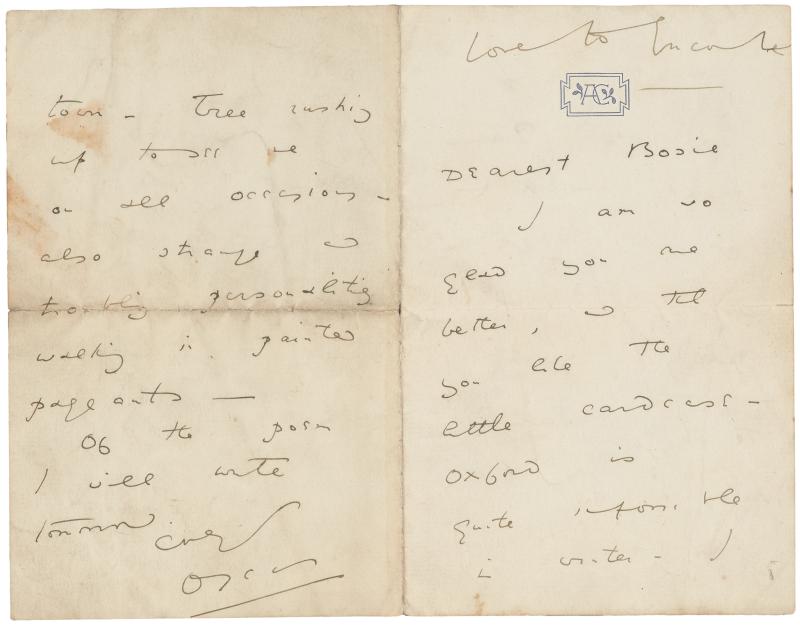 town - Tree rushing
up to see me
on all occasions -
also strange and
troubling personalities
walking in painted
pageants —
Of the poem
I will write
tomorrow
ever
Oscar
Love to Encombe
AC
Dearest Bosie
I am so
glad you are
better, and that
you like the
little cardcase -
Oxford is
quite impossible
in winter - I